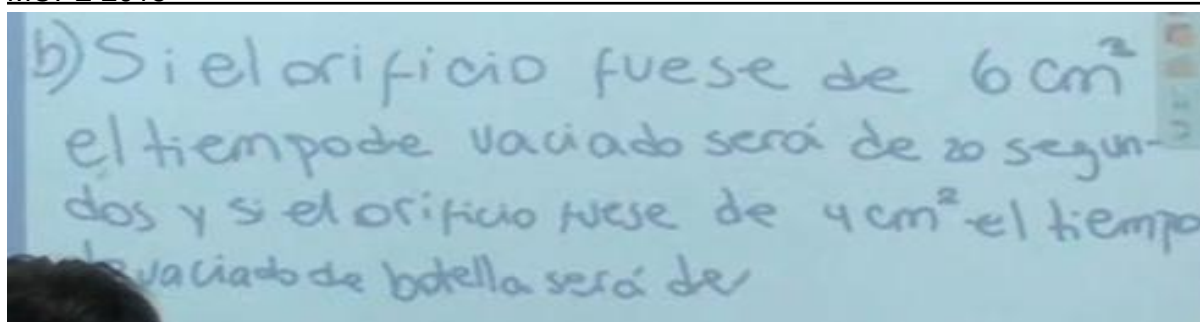 b) Si el orificio fuese de 6 cm²
el tiempo de vaciado será de 20 segun-
dos y si el orificio fuese de 4 cm² el tiempo
vaciado de botella será de